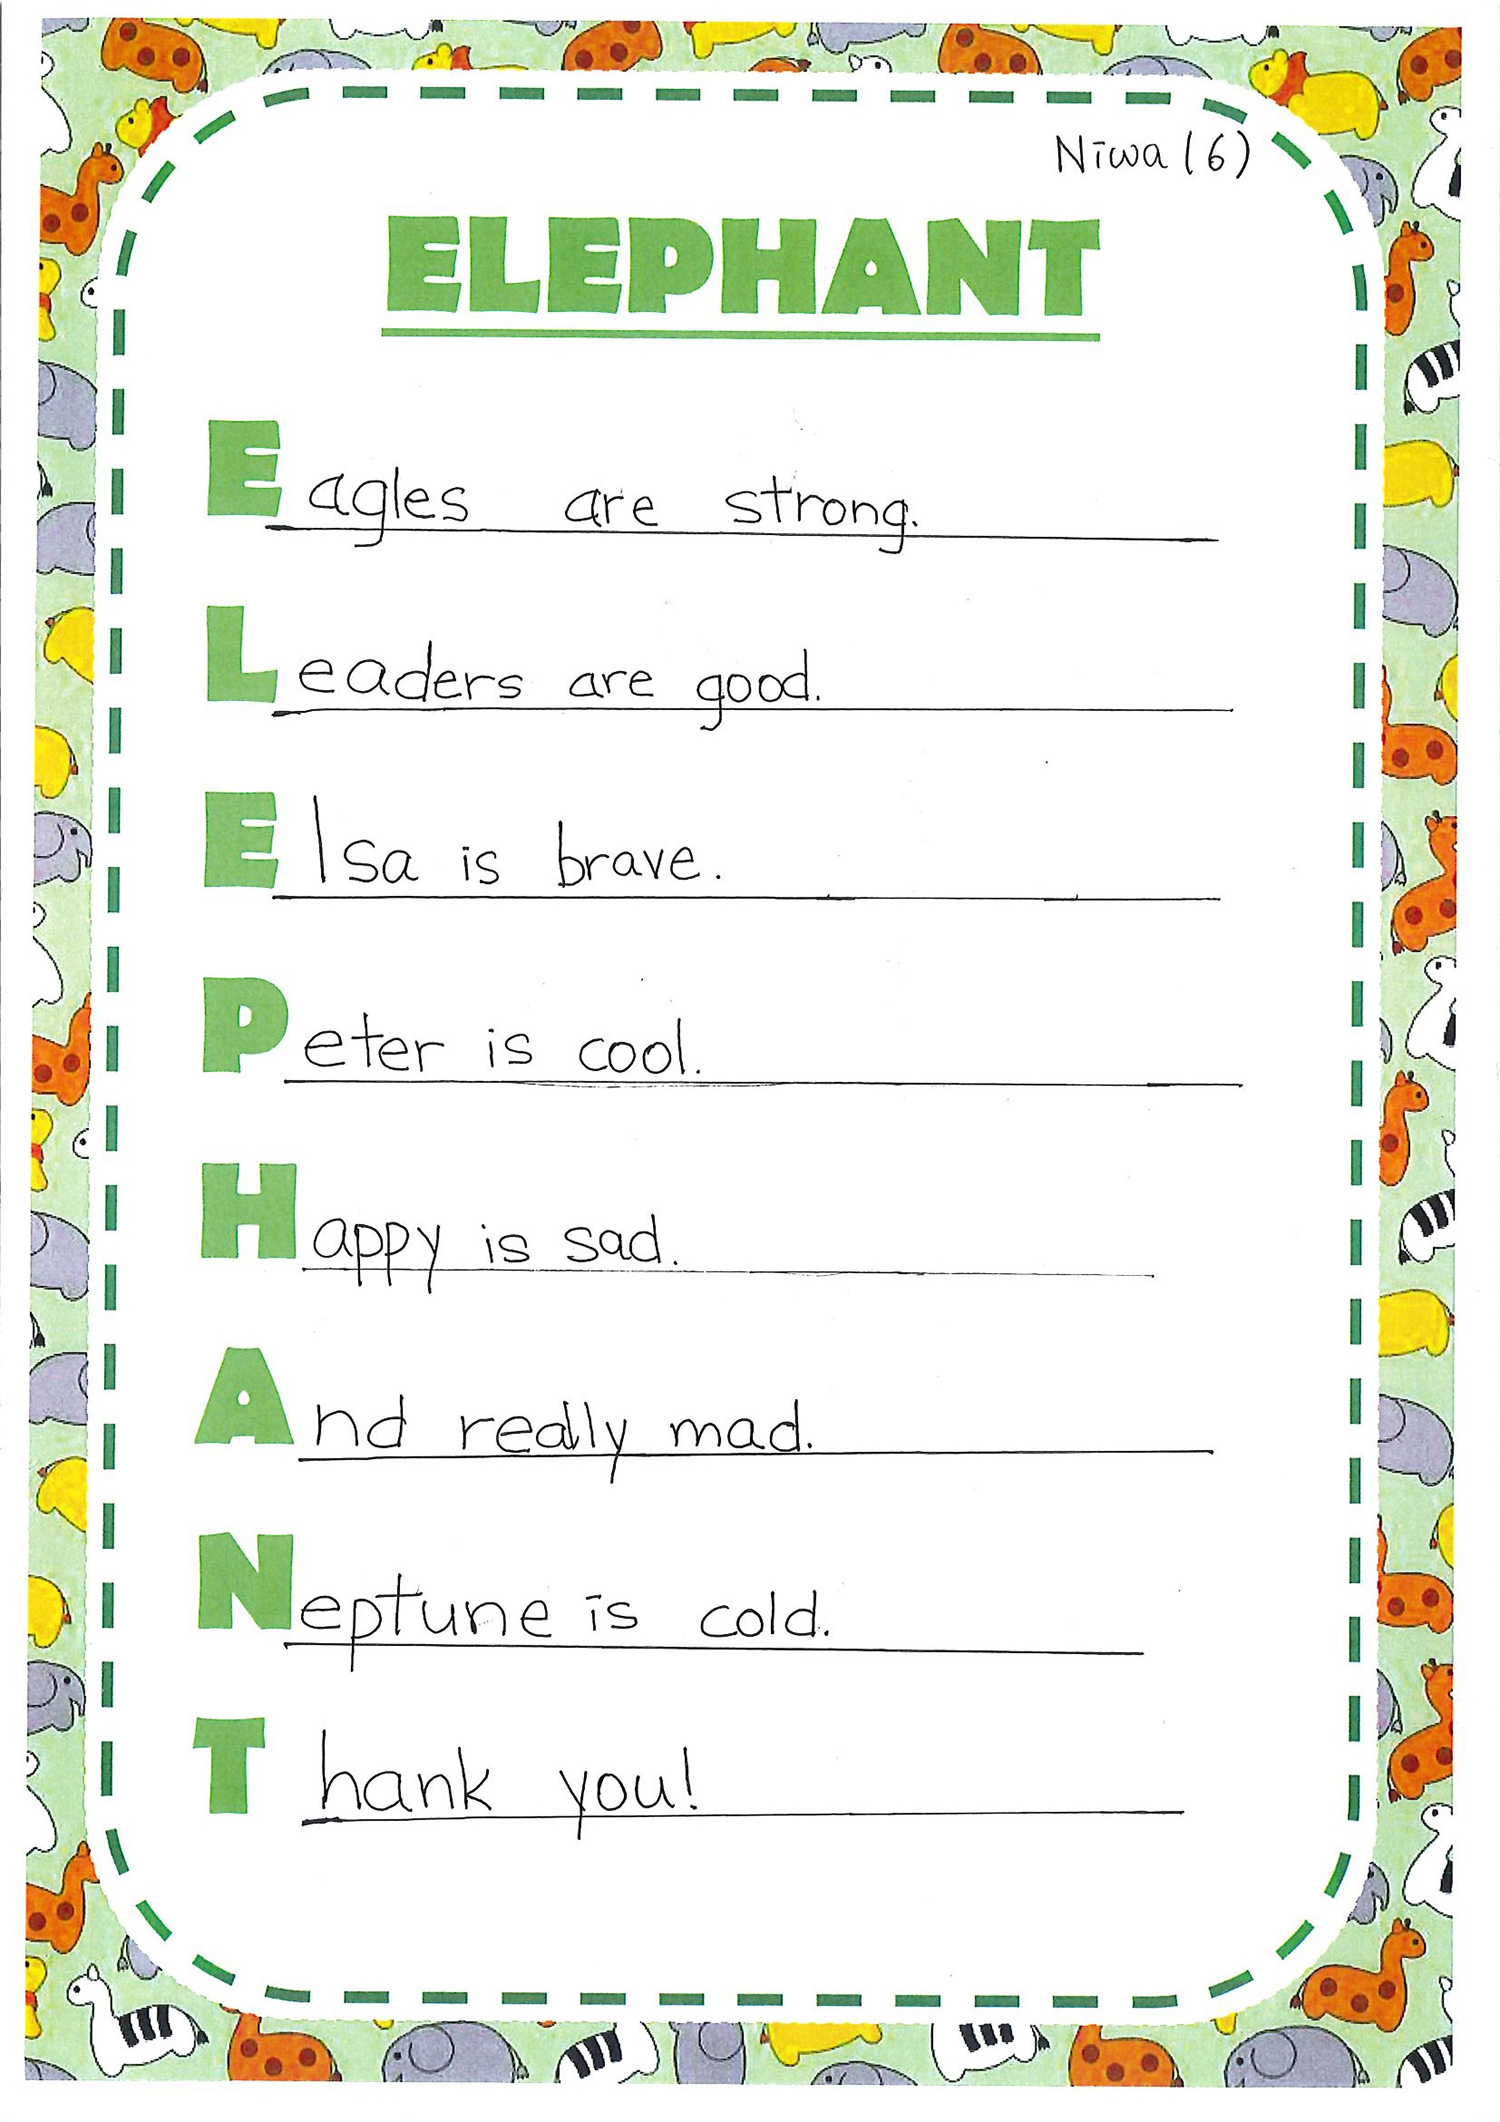 Niwa (6)
ELEPHANT
Eagles are strong.
Leaders are good.
Elsa is brave.
Peter is cool.
Happy is sad.
And really mad.
Neptune is cold.
Thank you!